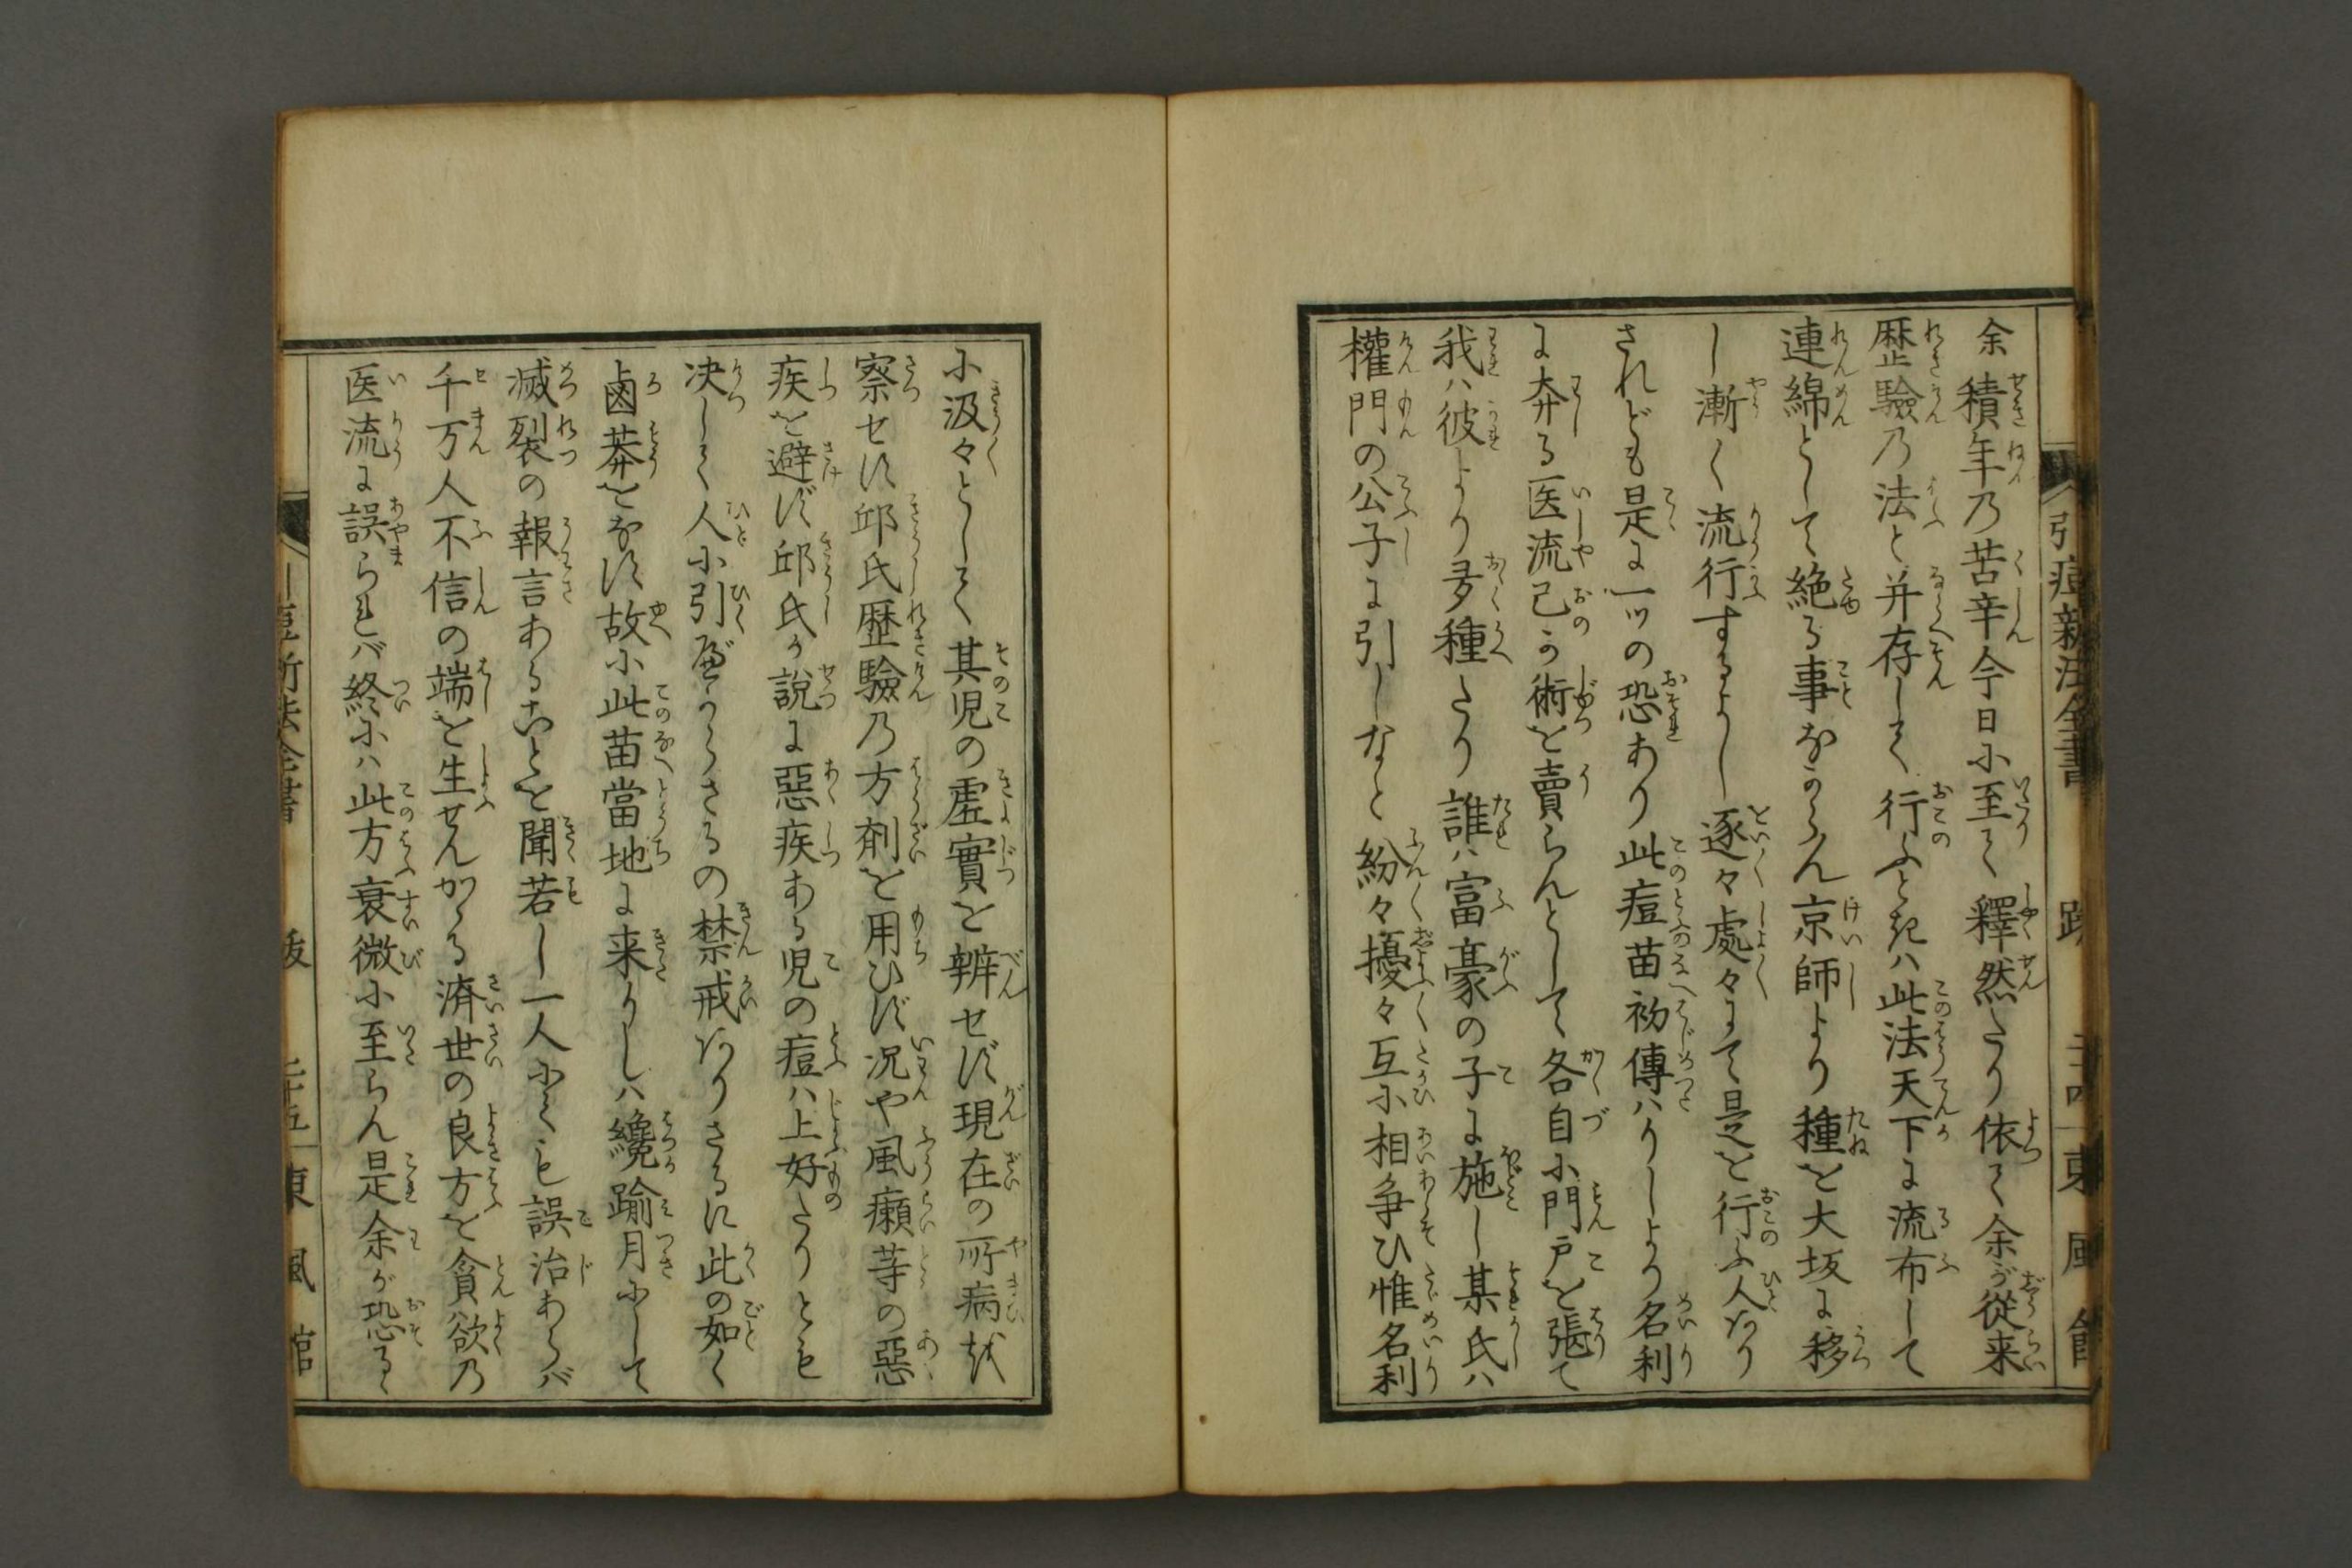 引痘新法全書 跋 東風館
余積年乃苦辛今日小至て釋然たり依て余が從来
歴驗乃法と并存して行ふときハ此法天下に流布して
連綿として絶る事なからん京師より種を大坂に移
し漸く流行するよし逐々處々にて是を行ふ人あり
されども是に一ツの恐あり此痘苗初傳ハりしより名利
に奔る医流己の術を賣らんとして各自小門戸を張て
我ハ彼より多種たり誰ハ富豪の子に施し某氏ハ
權門の公子に引しなと紛々擾々互小相争ひ惟名利
小汲々として其児の虚實を辨せず現在の所病を
察せす邱氏歴驗乃方剤を用ひず况や風癩等の惡
疾を避ず邱氏か說に惡疾ある児の痘ハ上好たりとも
决して人小引べからさるの禁戒ありさるに此の如く
鹵莽をなす故小此苗當地に来りしハ纔踰月小して
滅裂の報言あることを聞若し一人小ても誤治あらバ
千万人不信の端を生せんかゝる済世の良方を貪欲乃
医流に誤られバ終小ハ此方衰微小至らん是余が恐るゝ
痘新法全書 跋 二十五 東風館